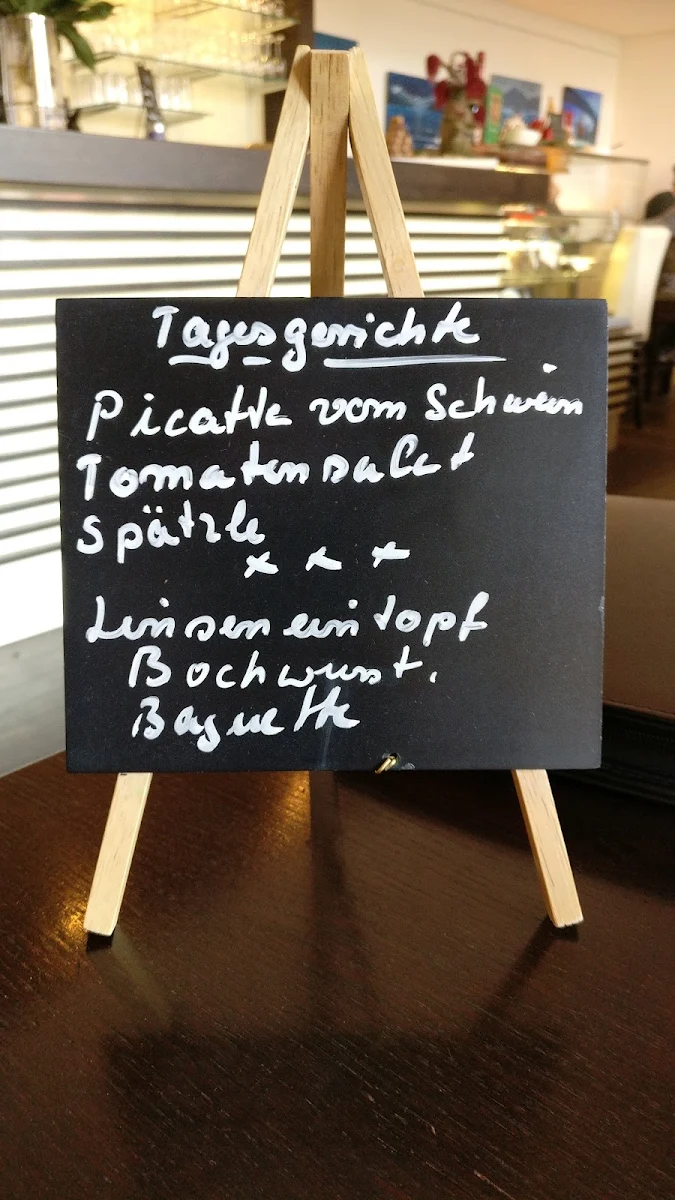 Tagesgerichte
Picatta vom Schwein
Tomatensalat
Spätzle
x x x
Linseneintopf
Bochwurst.
Baguette